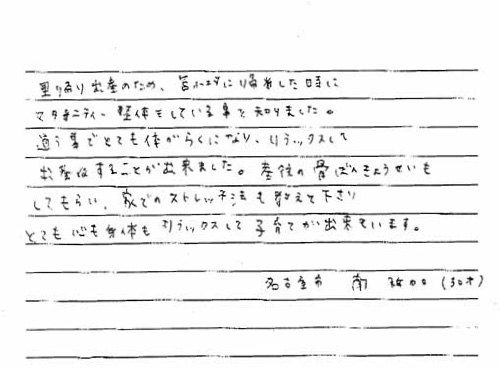 里帰り出産のため、宮小牧に帰省した時に
マタニティー整体をしている事を知りました。
通う事でとても体がらくになり、リラックスして
出産はすることが出来ました。産後の骨ばんきょうせいも
してもらい、家でのストレッチ法も教えて下さり
とても心も身体もリラックスして子育てが出来ています。
名古屋市 南 (30才)